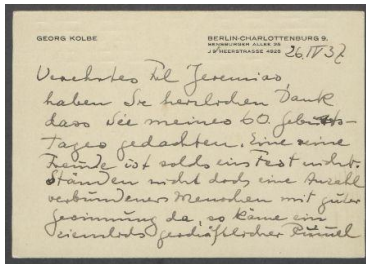 GEORG KOLBE
BERLIN-CHARLOTTENBURG 9.
SENSBURGER ALLEE 26
J 9 HEERSTRASSE 4826
26.IV 37
Verehrtes Frl Jeremias
haben Sie herzlichen Dank
dass Sie meines 60. Geburts-
Tages gedachten. Eine reine
Freude ist solch ein Fest nicht.
Ständen nicht doch eine Anzahl
verbundener Menschen mit guter
Gesinnung da, so käme ein
ziemlich geschäftlicher Rummel